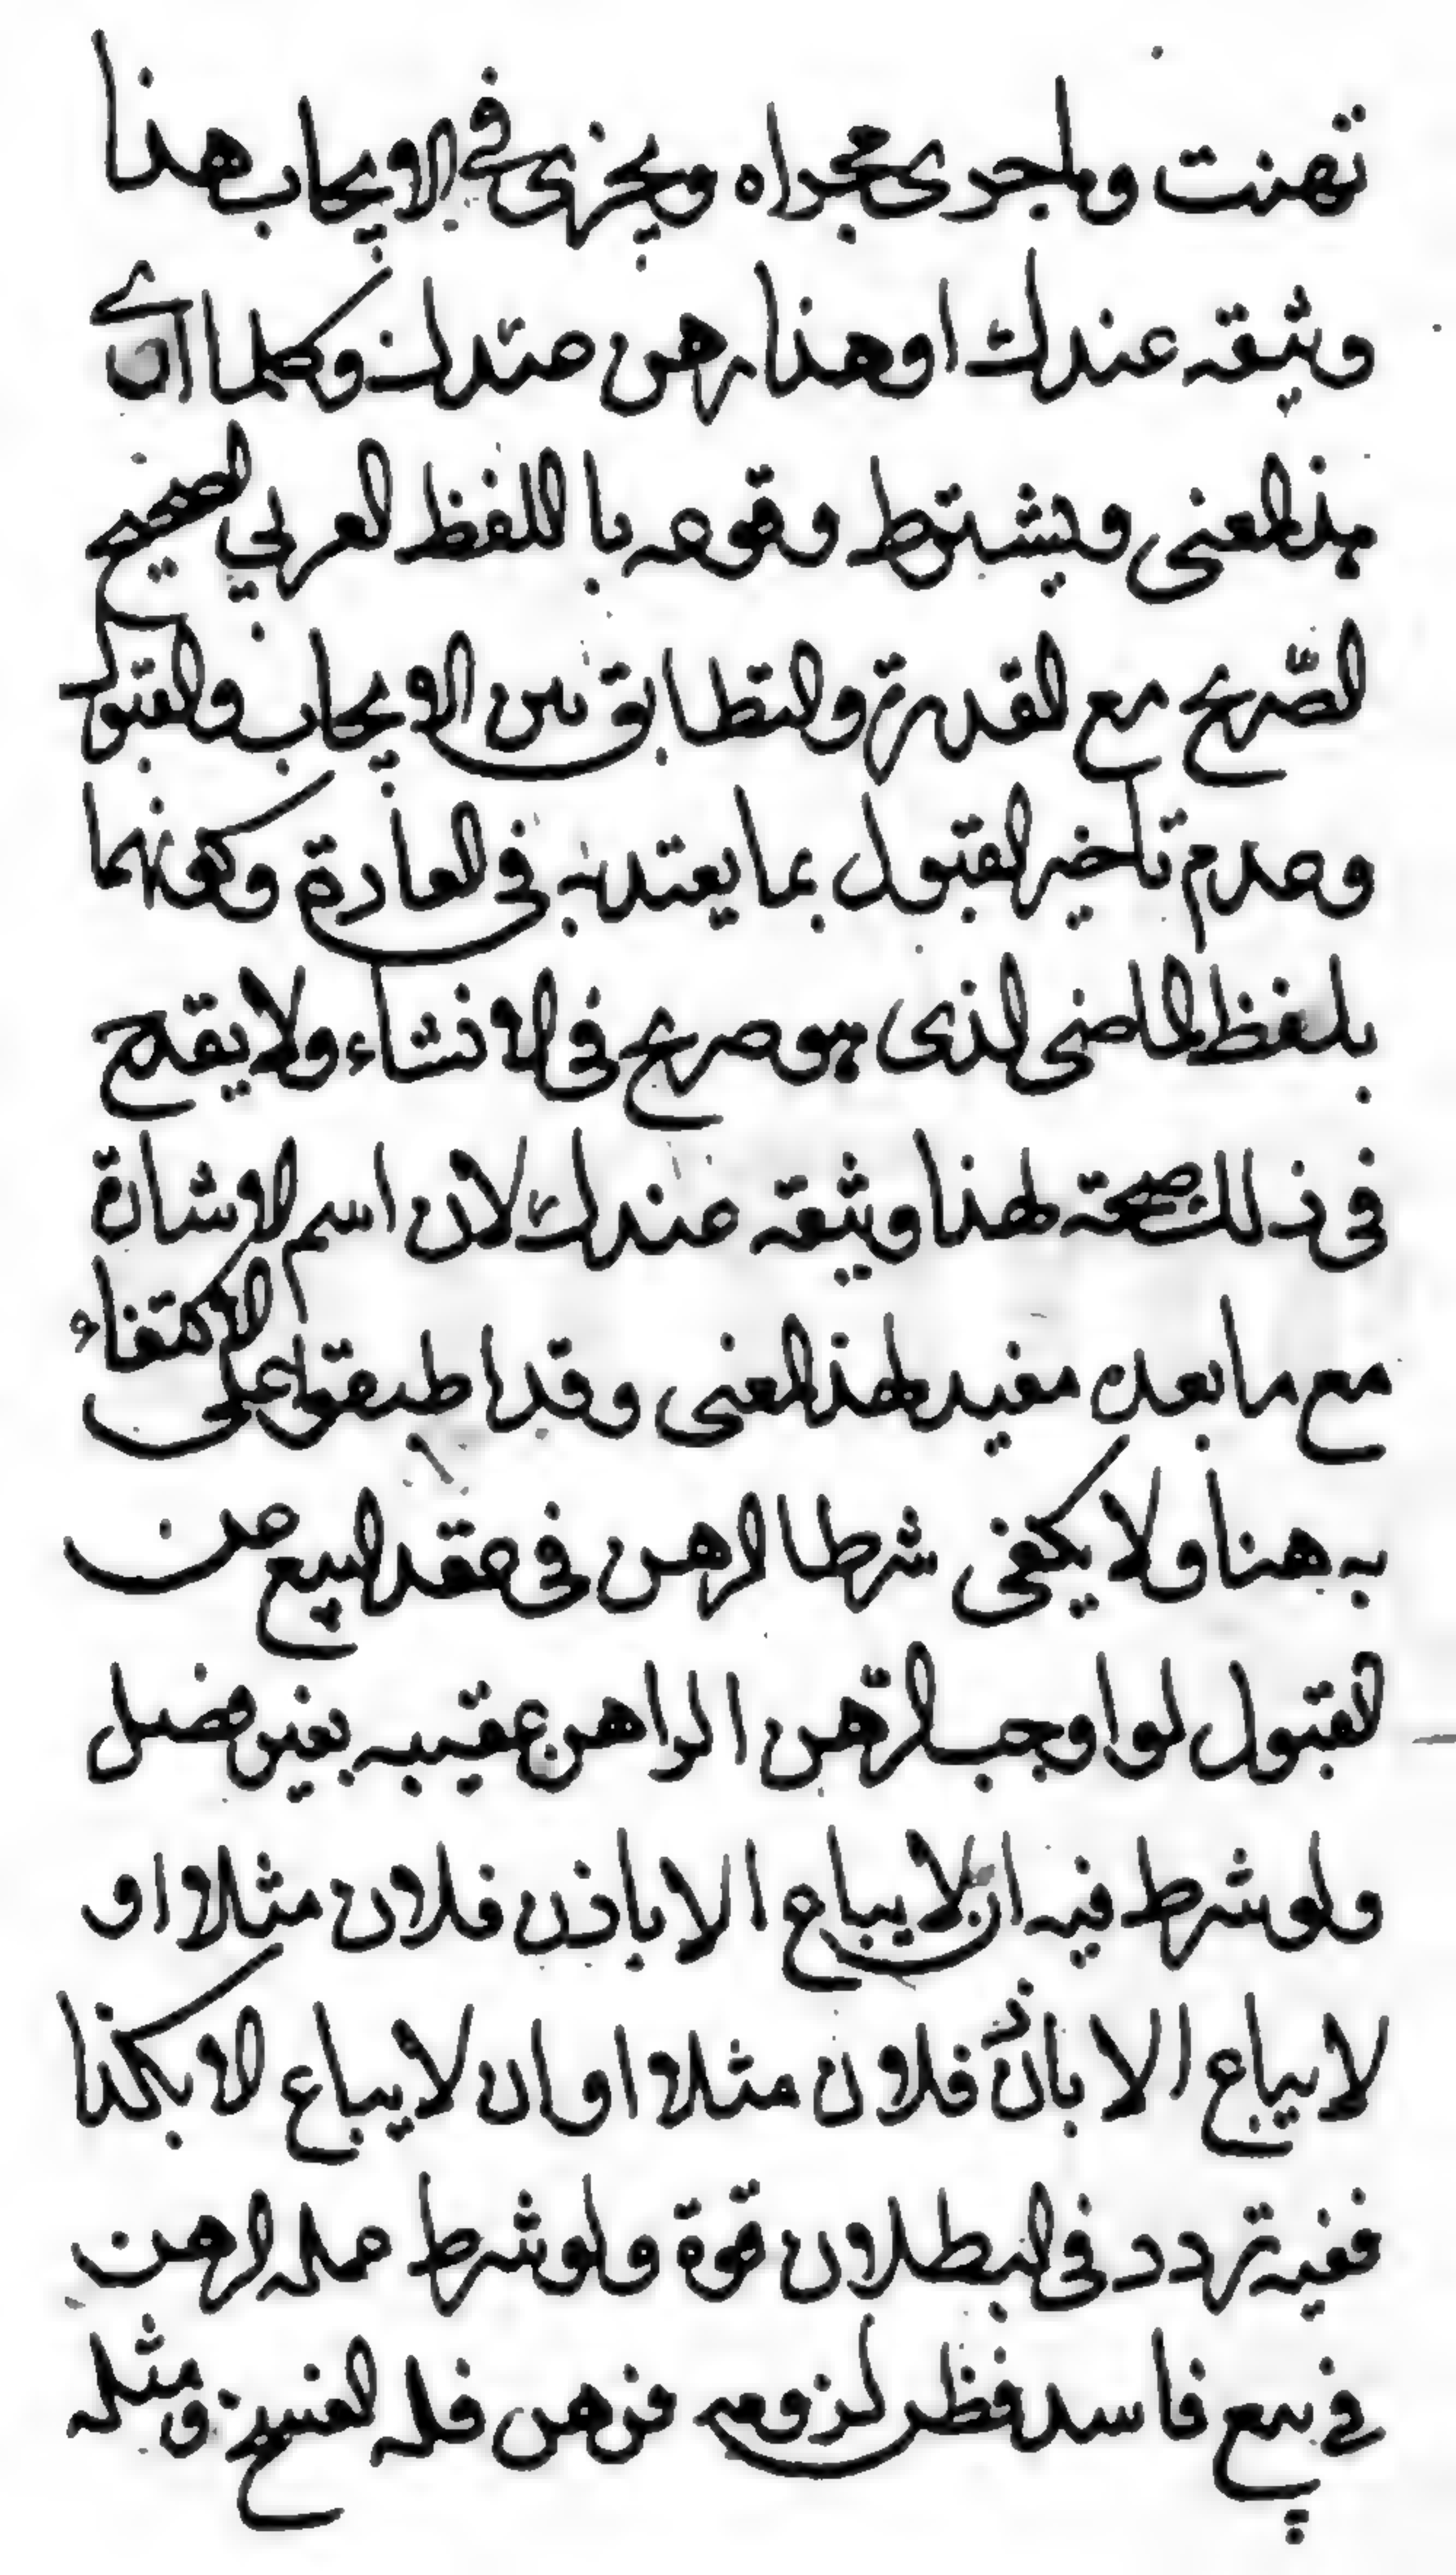 تهنت وما جرى مجراه ويجزى في الايجاب هذا
وثيقه عندك او هذا رهن عندك وكلما ادى
هذ المعنى ويشترط وقوعه با اللفظ العربي الصحيح
الصّريح مع القدرة والتطابق بين الايجاب والقبول
وعدم تأخير القبول بما يعتد به في العادة وكونهما
بلفظ الماضى الذى هو صريح فى الانشاء ولا يقدح
فى ذلك صحة لهذا وثيقه عندك لان اسم الاشارة
مع ما بعده مفيد لهذ المعنى وقد اطبقوا على الاكتفاء
به هنا ولا يكفى شرط الرهن فى عقد البيع عن
القبول لو اوجب الرّهن الراهن عقيبه بغير فصل
ولو شرط فيه ان لا يباع الا باذن فلان مثلا او
لا يباع الا باذن فلان مثلا او ان لا يباع الا بكذا
ففيه تردد فى البطلان قوة ولو شرط عليه الرهن
في بيع فاسد فظن لزومه فرهن فله الفسخ ومثله